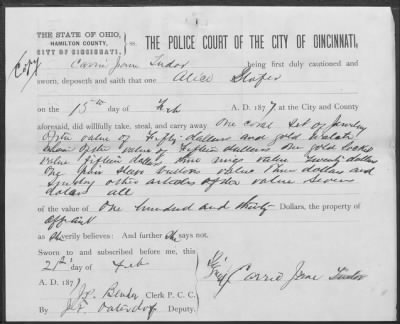 THE STATE OF OHIO,
HAMILTON COUNTY,
CITY OF CINCINNATI,
ss.
THE POLICE COURT OF THE CITY OF CINCINNATI,
City
Carrie Jane Tudor being first duly cautioned and
sworn, deposeth and saith that one Alice
on the 15th day of Feb A. D. 1877 at the City and County
aforesaid, did willfully take, steal, and carry away One coral Set of Jewelry
of the value of Fifty dollars and gold watch
chain of the value of Fifteen dollars one gold locket
value fifteen dollars two rings value Twenty dollars
One pair sleeve buttons value three dollars and
sundry other articles of the value seven
dollars all
of the value of One hundred and thirty Dollars, the property of
affiant
as She verily believes: And further She says not.
Sworn to and subscribed before me, this
21st day of Feb
A. D. 1877
Clerk P. C. C.
By Deputy.
Carrie Jane Tudor